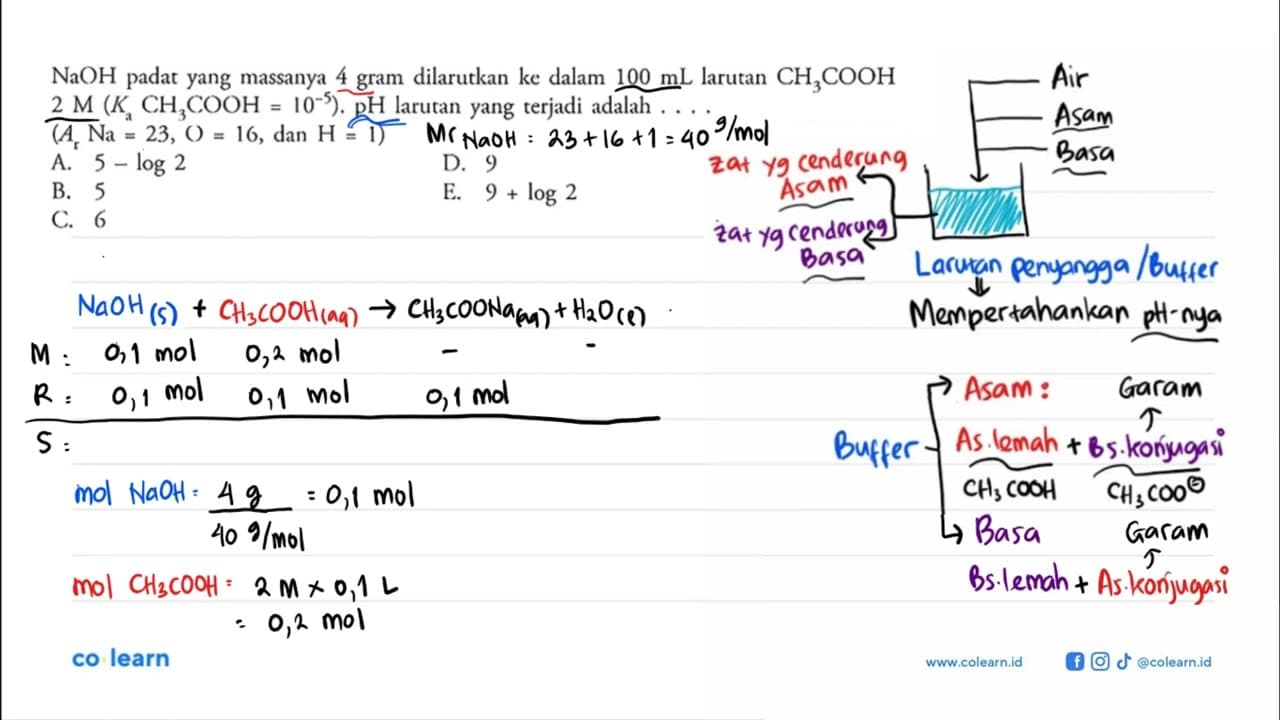 NaOH padat yang massanya 4 gram dilarutkan ke dalam 100 mL larutan CH₃COOH
2 M (Kₐ CH₃COOH = 10⁻⁵). pH larutan yang terjadi adalah . . . .
(Aᵣ Na = 23, O = 16, dan H = 1)
Mr NaOH : 23 + 16 + 1 = 40 g/mol
A. 5 – log 2
B. 5
C. 6
D. 9
E. 9 + log 2
Air
Asam
Basa
zat yg cenderung
Asam
zat yg cenderung
Basa
Larutan penyangga / Buffer
⇓
Mempertahankan pH-nya
NaOH (s) + CH₃COOH (aq) → CH₃COONa (aq) + H₂O (l)
M : 0,1 mol 0,2 mol - -
R : 0,1 mol 0,1 mol 0,1 mol
S :
mol NaOH : 4 g = 0,1 mol
40 g/mol
mol CH₃COOH : 2 M x 0,1 L
= 0,2 mol
Buffer
Asam : Garam
↑
As.lemah + Bs.konjugasi
CH₃COOH CH₃COO⊖
Basa Garam
↑
Bs.lemah + As.konjugasi
co learn
www.colearn.id
@colearn.id